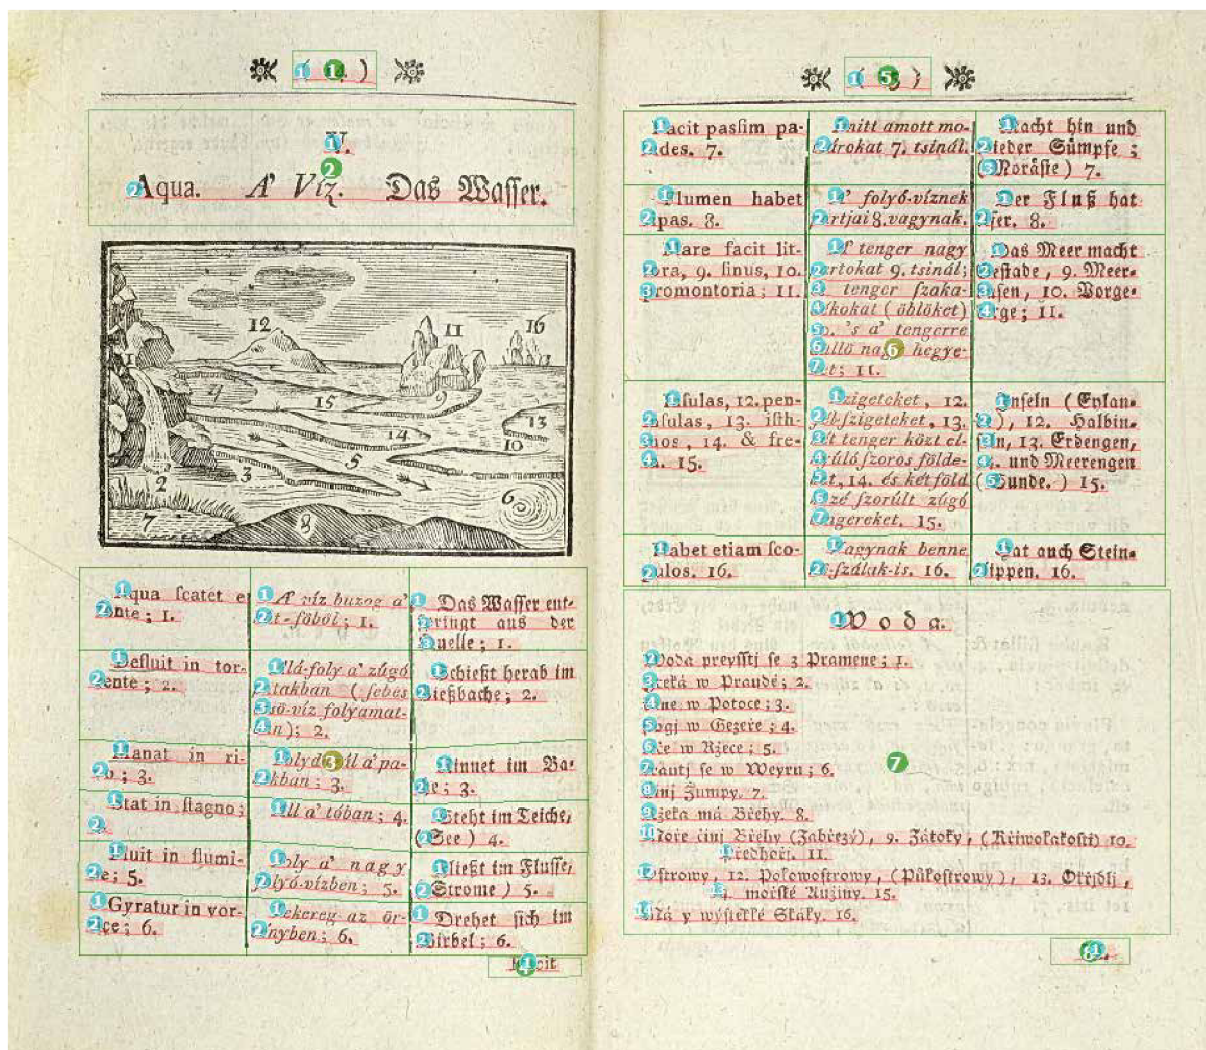 V.
Aqua. A' Víz. Das Waſſer.
12
11
16
1
4
9
15
13
14
10
3
5
2
6
7
8
Aqua ſcatet e
fonte; 1.
A' víz buzog a'
1.
Das Waſſer ent-
ſpringt aus der
Quelle; 1.
Defluit in tor-
rente; 2.
Alá-foly a' zúgó
patakban (ſebes
eső-víz folyamat-
ban); 2.
Schießt herab im
Gießbache; 2.
Manat in ri-
vo; 3.
a' pa-
takban; 3.
Rinnet im Ba-
che; 3.
Stat in ſtagno;
Áll a' tóban; 4.
Steht im Teiche,
(See) 4.
Fluit in flumi-
ne; 5.
Foly a' nagy
folyó-vízben; 5.
Fließt im Fluſſe,
(Strome) 5.
Gyratur in vor-
tice; 6.
Tekereg az ör-
vényben; 6.
Drehet ſich im
Wirbel; 6.
Facit
Facit paſſim pa-
ludes. 7.
amott mo-
tsárokat 7. tsinál.
Macht hin und
wieder Sümpfe;
(Moräſte) 7.
Flumen habet
ripas. 8.
A' folyó-víznek
partjai 8. vagynak.
Der Fluß hat
Ufer. 8.
Mare facit lit-
tora, 9. ſinus, 10.
promontoria; 11.
A' tenger nagy
partokat 9. tsinál;
tenger ſzaka-
(öblöket)
10. 's a' tengerre
hegye-
ket; 11.
Das Meer macht
Geſtade, 9. Meer-
buſen, 10. Vorge-
birge; 11.
Inſulas, 12. pen-
inſulas, 13. iſth-
mos, 14. & fre-
ta. 15.
Szigeteket, 12.
fél-ſzigeteket, 13.
két tenger közt el-
nyúló ſzoros földe-
ket, 14. és két föld
közé ſzorúlt zúgó
tengereket. 15.
Inſeln (Eylan-
de), 12. Halbin-
ſeln, 13. Erdengen,
14. und Meerengen
(Sunde.) 15.
Habet etiam ſco-
pulos. 16.
Vagynak benne
kő-ſzálak-is. 16.
Hat auch Stein-
klippen. 16.
Woda.
Woda preyſſtj ſe z Pramene; 1.
w Praudě; 2.
w Potoce; 3.
Stogj w Gezeře; 4.
Teče w Ržece; 5.
ſe w Weyru; 6.
Činj Žumpy. 7.
Ržeka má Břehy. 8.
Moře činj Břehy (Zabřezý), 9. Zátoky, (Křiwolakoſti) 10.
Předhoří. 11.
Oſtrowy, 12. Polowoſtrowy, (Půloſtrowy), 13. Okřjdlj,
14. mořſké Aužiny. 15.
Má y wýſtřklé Skály. 16.